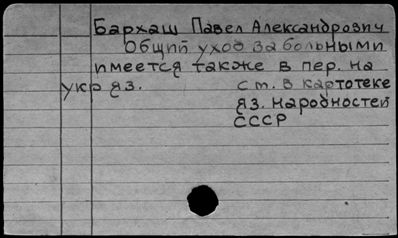 Бархаш Павел Александрович
Общий уход за больными
имеется также в пер. на
укр яз. см. в картотеке
яз. народностей
СССР